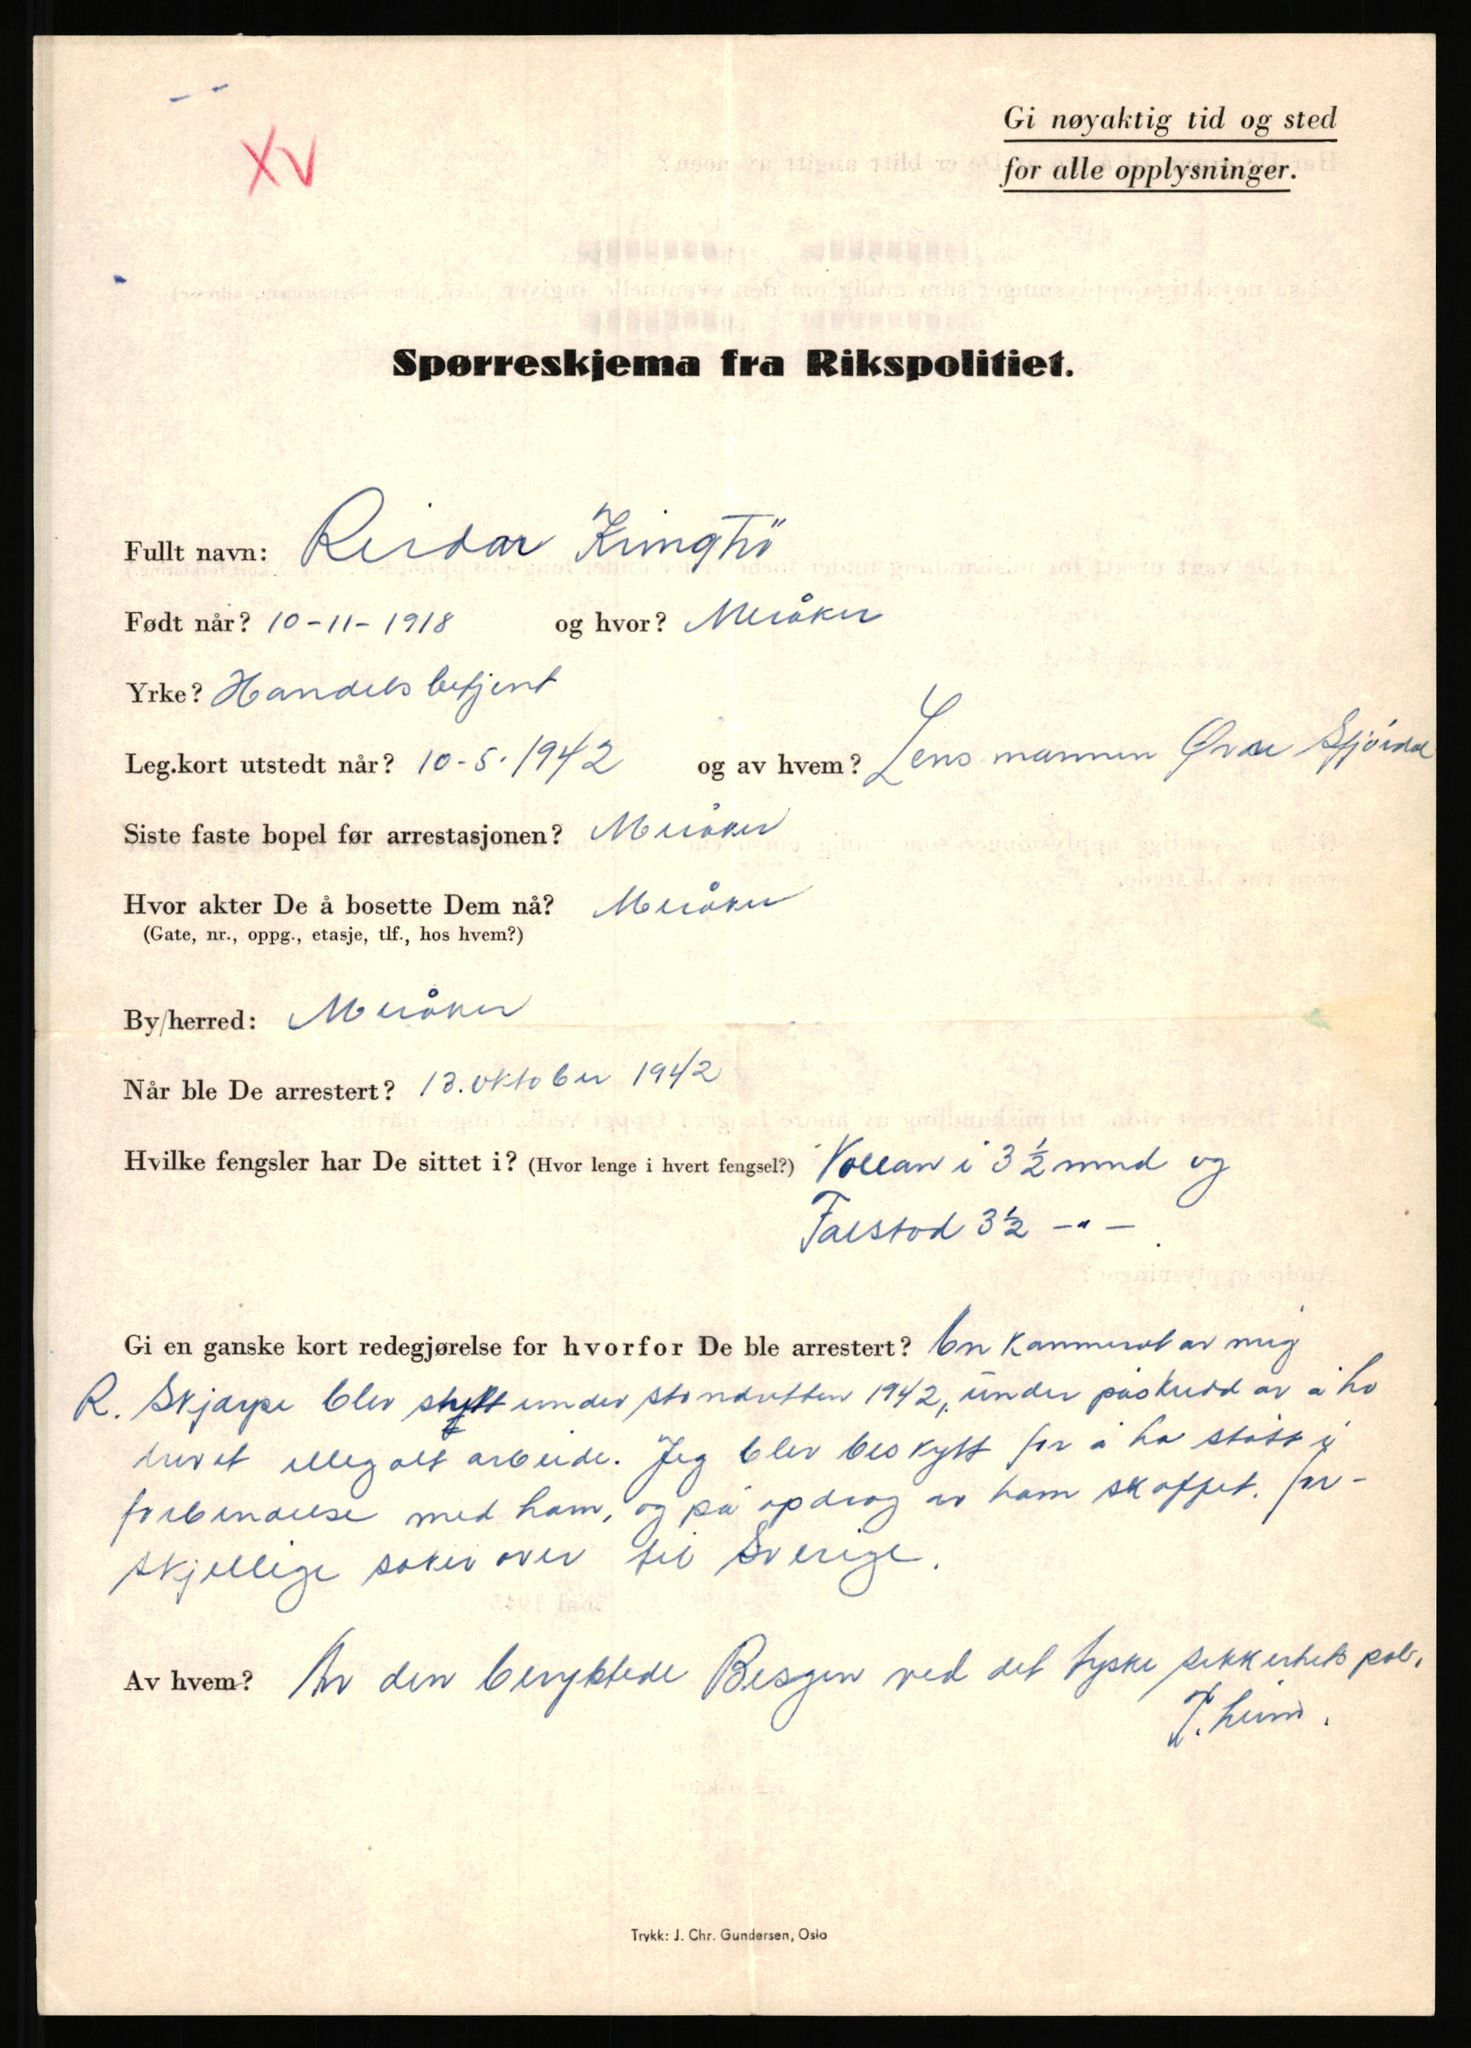 XV
Gi nøyaktig tid og sted
for alle opplysninger.
Spørreskjema fra Rikspolitiet.
Fullt navn: Reidar Kringhø
Født når? 10-11-1918 og hvor? Meråker
Yrke? Handelsbetjent
Leg.kort utstedt når? 10-5-1942 og av hvem? Lensmannen Øvre Stjørdal
Siste faste bopel før arrestasjonen? Meråker
Hvor akter De å bosette Dem nå? Meråker
(Gate, nr., oppg., etasje, tlf., hos hvem?)
By/herred: Meråker
Når ble De arrestert? 13. oktober 1942
Hvilke fengsler har De sittet i? (Hvor lenge i hvert fengsel?) Vollan i 3 ½ mnd og
Falstad 3 ½ -"-
Gi en ganske kort redegjørelse for hvorfor De ble arrestert? En kammerat av mig
R. Skjarpe blev skutt under standretten 1942, under påskudd av å ha
drevet illegalt arbeide. Jeg blev beskyldt for å ha stått i
forbindelse med ham, og på opdrag av ham skaffet for-
skjellige saker over til Sverige.
Av hvem? Av den beryktede Besgen ved det tyske sikkerhets pol.
T.heim.
Trykk: J. Chr. Gundersen, Oslo